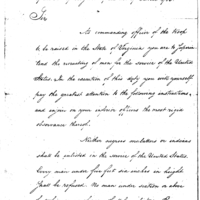 Sir
As commanding officer of the troops
to be raised in the State of Virginia you are to superin
tend the recruiting of men for the service of the United
States. In the execution of this duty you will yourself
pay the greatest attention to the following instructions,
and enjoin on your inferior officers the most rigid
observance thereof.
Neither negroes mulattoes or indians
shall be enlisted in the service of the United States.
Every man under five feet six inches in height
shall be refused. No man under sixteen or above